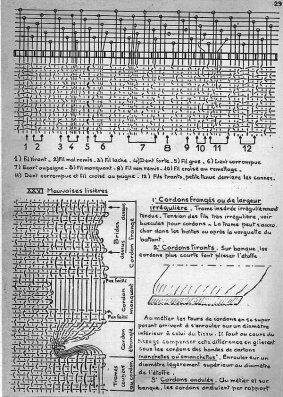 29
1 2 3 4 5 6 7 8 9 10 11 12
1) Fil tirant. 2) Fil mal remis. 3) Fil lache. 4) Dent forte. 5) Fil gros. 6) Dent corrompue
7) Ecart au peigne. 8) Fil manquant. 9) Fil non remis. 10) Fil croisé au remettage.
11) Dent corrompue et fil croisé au peigne. 12) Fils tirants, petite tenue derrière les cannes.
XXVI Mauvaises lisières
Brides dessus
dessous
Cordon frangé
Pas failli
Cordon manquant
Pas failli
Cordon
Trames
au cordon
1° Cordons frangés ou de largeur
irrégulière. Trame insérée irrégulièrement
tendue. Tension des fils très irrégulière, voir
bascules pour cordons. La trame peut s'accro-
cher dans les boîtes ou après la verguette du
battant.
2° Cordons tirants. Sur banque, les
cordons plus courts font plisser l'étoffe
Au métier les tours de cordons en se super
posant arrivent à s'enrouler sur un diamètre
inférieur à celui du tissu. Il faut au cours du
tissage compenser cette différence en glissant
sous les cordons des bandes de carton
manchettes ou emanchettes. Enrouler sur un
diamètre légèrement supérieur au diamètre
de l'étoffe.
3° Cordons ondulés. Au métier et sur
banque, les cordons ondulent par rapport